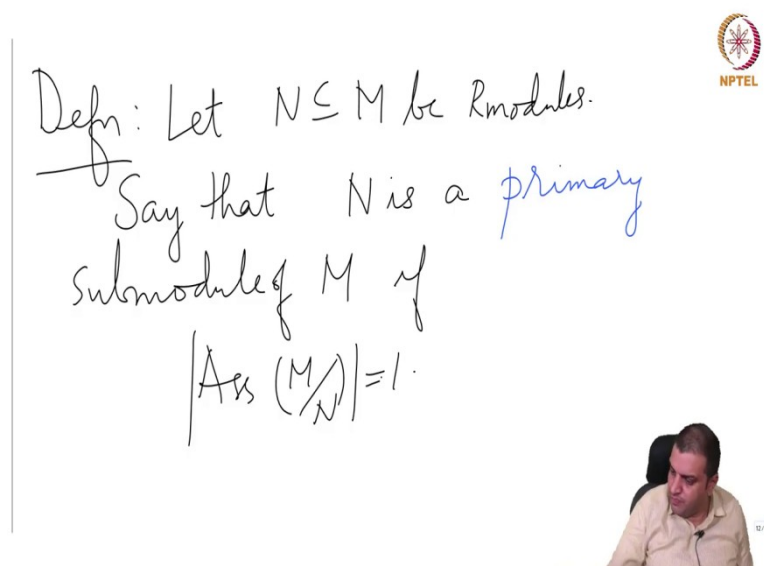 NPTEL
Defn: Let N ⊆ M be Rmodules.
Say that N is a primary
submodule of M if
|Ass (M/N)| = 1.
12/